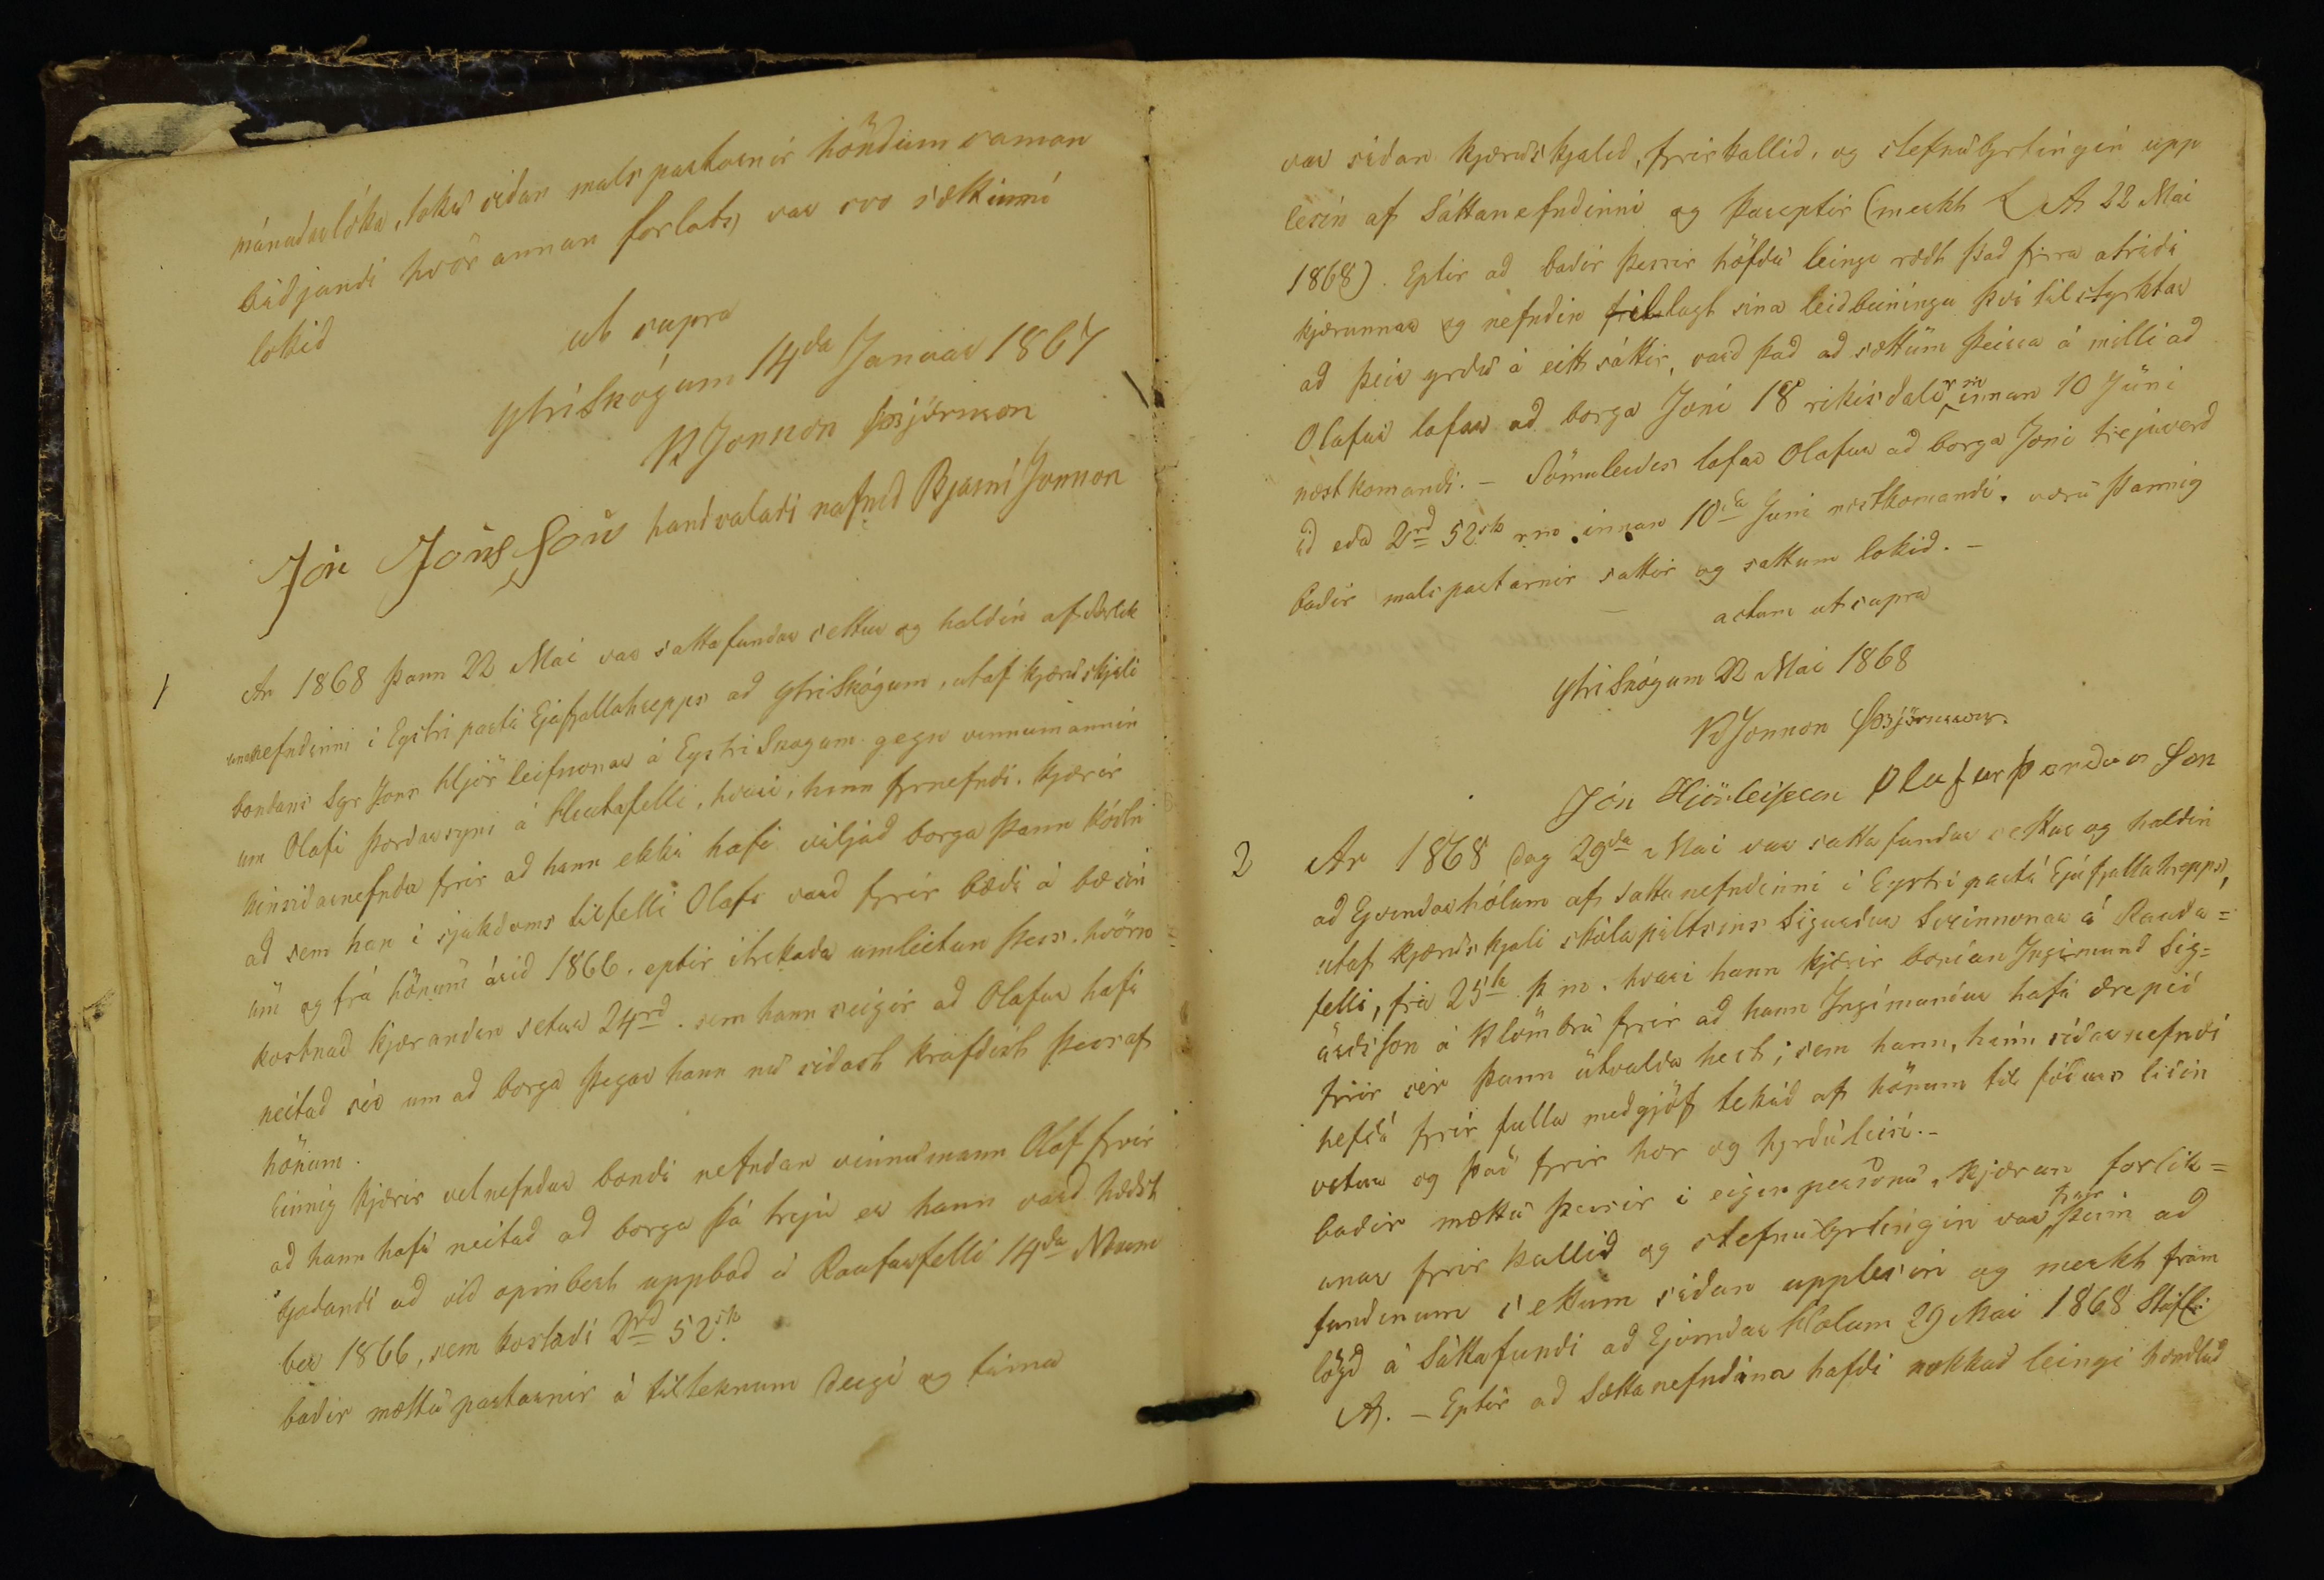 mánudarlóka, tóku sidan malspartarnir höndum saman
bidjandi hvör annan forlats, var svo sættinni
lokid
ut supra
YtriSkógum 14da Januar 1867
KJonsson ÞBjörnsson
Jón Jónsson handsaladi nafnid Bjarni Jonsson
1 Ar 1868 þann 22 Mai var sattafundur settur og haldin af forlik
unarnefndinni i Eystri parti Ejafjallahrepps ad YtriSkógum, utaf kjæruskjali
bondans Sgr Jons Hjörleifssonar á EystriSkogum gegn vinnumannin
um Olafi Þordarsyni á hvari, hinn fyrnefndi, kjærir
hinsidarnefnda fyrir ad hann ekki hafi viljad borga þann kóstn
ad sem han i sjukdoms tilfelli Olafs vard fyrir bædi á bæ sin
um og frá hönum árid 1866. eptir itrekada umleitun þess. hvörn
kostnad kjærandin setur 24rd. sem hann seigir ad Olafur hafi
neitad sér um ad borga þegar hann nu sidast krafdist þess af
hönum.
Einnig kjærir velnefndur bondi nefndan vinnumann Olaf fyrir
ad hann hafi neitad ad borga þá treju er hann vard hædst
bjodandi ad vid opinbert uppbod á Raufarfelli 14da Novem
ber 1866, sem kostadi 2rd 52sk.
badir mættu partarnir á tilteknum deigi og tima
var sidan kjæruskjalid, fyrirkallid, og stefnubyrtingin upp
lesin af Sáttanefndinni og þareptir (merkt A 22 Mai
1868). Eptir ad badir þessir höfdu leingi rædt þad fyrra atridi
kjærunnar og nefndin tillagt sina leidbeiningu því til styrktar
ad þeir yrdu á eitt sáttir, vard þad ad sættum þeirra á milli ad
Olafur lofar ad borga Joni 18 rikisdali rm innan 10 Júni
næstkomandi. - Sömuleidis lofar Olafur ad borga Joni trejuverd
id eda 2rd 52sk rm innan 10da Juni næstkomandi. voru þannig
badir malspartarnir sattir og sattum lokid. -
actum ut supra
YtriSkógum 22 Mai 1868
KJonsson ÞBjörnsson.
Jón Hjörleifsson Olafur Þordarson
2 Ar 1868 dag 29da Mai var sattafundur settur og haldin
ad Ejvindarhólum af Sattanefndinni i Eystri parti Ejafjallahrepps,
utaf kjæruskjali skólapiltsins Sigurdur Sveinssonar á Rauda=
felli, frá 25ta þ m. hvari hann kjærir bondan Ingimund Sig=
urdsson á Klömbru fyrir ad hann Ingimundur hafi drepid
fyrir sér þann útvalda hest; sem hann, hinn sidarnefndi
hefdi fyrir fulla medgjöf tekid af hönum til fódurs lidin
vetur og þad fyrir hor og hyrduleisi. -
badir mættu þessir i eigin personu, kjæran forlik=
unar fyrir kallid og stefnubyrtingin var fyrir þeim ad
fundinum settum sidan upplesin og merkt fram
lögd á Sáttafundi ad Ejvindar Holum 29 Mai 1868 Stafli
A. - Eptir ad Sættanefndina hafdi nokkud leingi hondlad